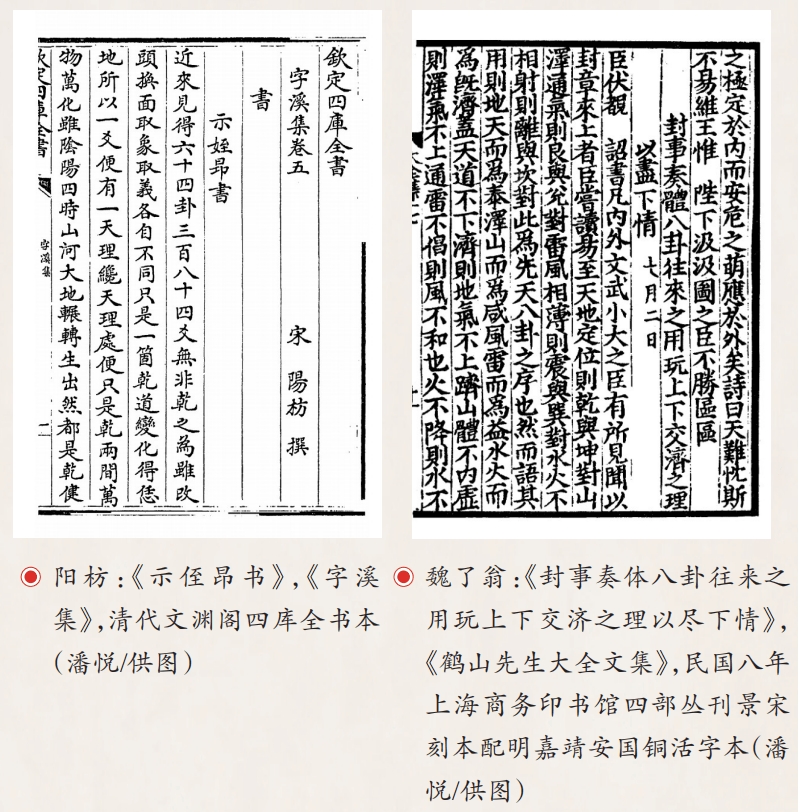 欽定四庫全書
字溪集卷五
宋 陽枋 撰
書
示姪昂書
近來見得六十四卦三百八十四爻無非乾之為雖改
頭換面取象取義各自不同只是一箇乾道變化得恁
地所以一爻便有一天理纔天理處便只是乾兩間萬
物萬化雖陰陽四時山河大地輾轉生出然都是乾健
欽定四庫全書
字溪集
二
之極定於內而安危之萌應於外矣詩曰天難忱斯
不易維王惟 陛下汲汲圖之臣不勝區區
封事奏體八卦往來之用玩上下交濟之理
以盡下情 七月二日
臣伏覩 詔書凡內外文武小大之臣有所見聞以
封章來上者臣嘗讀易至天地定位則乾與坤對山
澤通氣則艮與兌對雷風相薄則震與巽對水火不
相射則離與坎對此為先天八卦之序也然而語其
用則地天而為泰澤山而為咸風雷而為益水火而
為既濟蓋天道不下濟則地氣不上躋山體不內虛
則澤氣不上通雷不倡則風不和也火不降則水不
阳枋:《示侄昂书》,《字溪
集》,清代文渊阁四库全书本
(潘悦/供图)
魏了翁:《封事奏体八卦往来之
用玩上下交济之理以尽下情》,
《鹤山先生大全文集》,民国八年
上海商务印书馆四部丛刊景宋
刻本配明嘉靖安国铜活字本(潘
悦/供图)